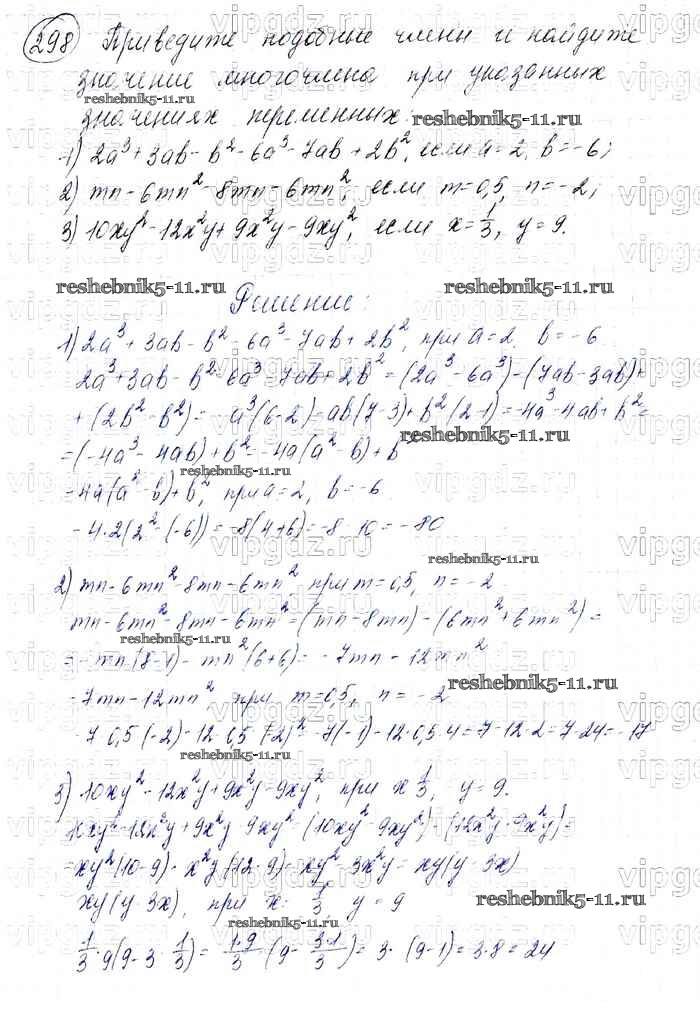 298 Приведите подобные члены и найдите
значение многочлена при указанных
значениях переменных
1) 2a³+3ab-b²-6a³-7ab+2b², если a=2, b=-6;
2) mn-6mn²-8mn-6mn², если m=0,5, n=-2;
3) 10xy²-12x²y+9x²y-9xy², если x=1/3, y=9.
Решение:
1) 2a³+3ab-b²-6a³-7ab+2b², при a=2, b=-6
2a³+3ab-b²-6a³-7ab+2b²=(2a³-6a³)-(7ab-3ab)+
+(2b²-b²)=-a³(6-2)-ab(7-3)+b²(2-1)=-4a³-4ab+b²=
=(-4a³-4ab)+b²=-4a(a²-b)+b
-4a(a²-b)+b², при a=2, b=-6
-4·2(2²-(-6))=-8(4+6)=-8·10=-80
2) mn-6mn²-8mn-6mn², при m=0,5, n=-2
mn-6mn²-8mn-6mn²=(mn-8mn)-(6mn²+6mn²)=
=-mn(8-1)-mn²(6+6)=-7mn-12mn²
-7mn-12mn², при m=0,5, n=-2
-7·0,5·(-2)-12·0,5·(-2)²=-7(-1)-12·0,5·4=7-12·2=7-24=-17
3) 10xy²-12x²y+9x²y-9xy², при x 1/3, y=9.
10xy²-12x²y+9x²y-9xy²=(10xy²-9xy²)-(12x²y-9x²y)=
=xy²(10-9)-x²y(12-9)=xy²-3x²y=xy(y-3x)
xy(y-3x), при x=1/3 y=9
1/3·9(9-3·1/3)=1·9/3·(9-3·1/3)=3·(9-1)=3·8=24
vipgdz.ru
reshebnik5-11.ru